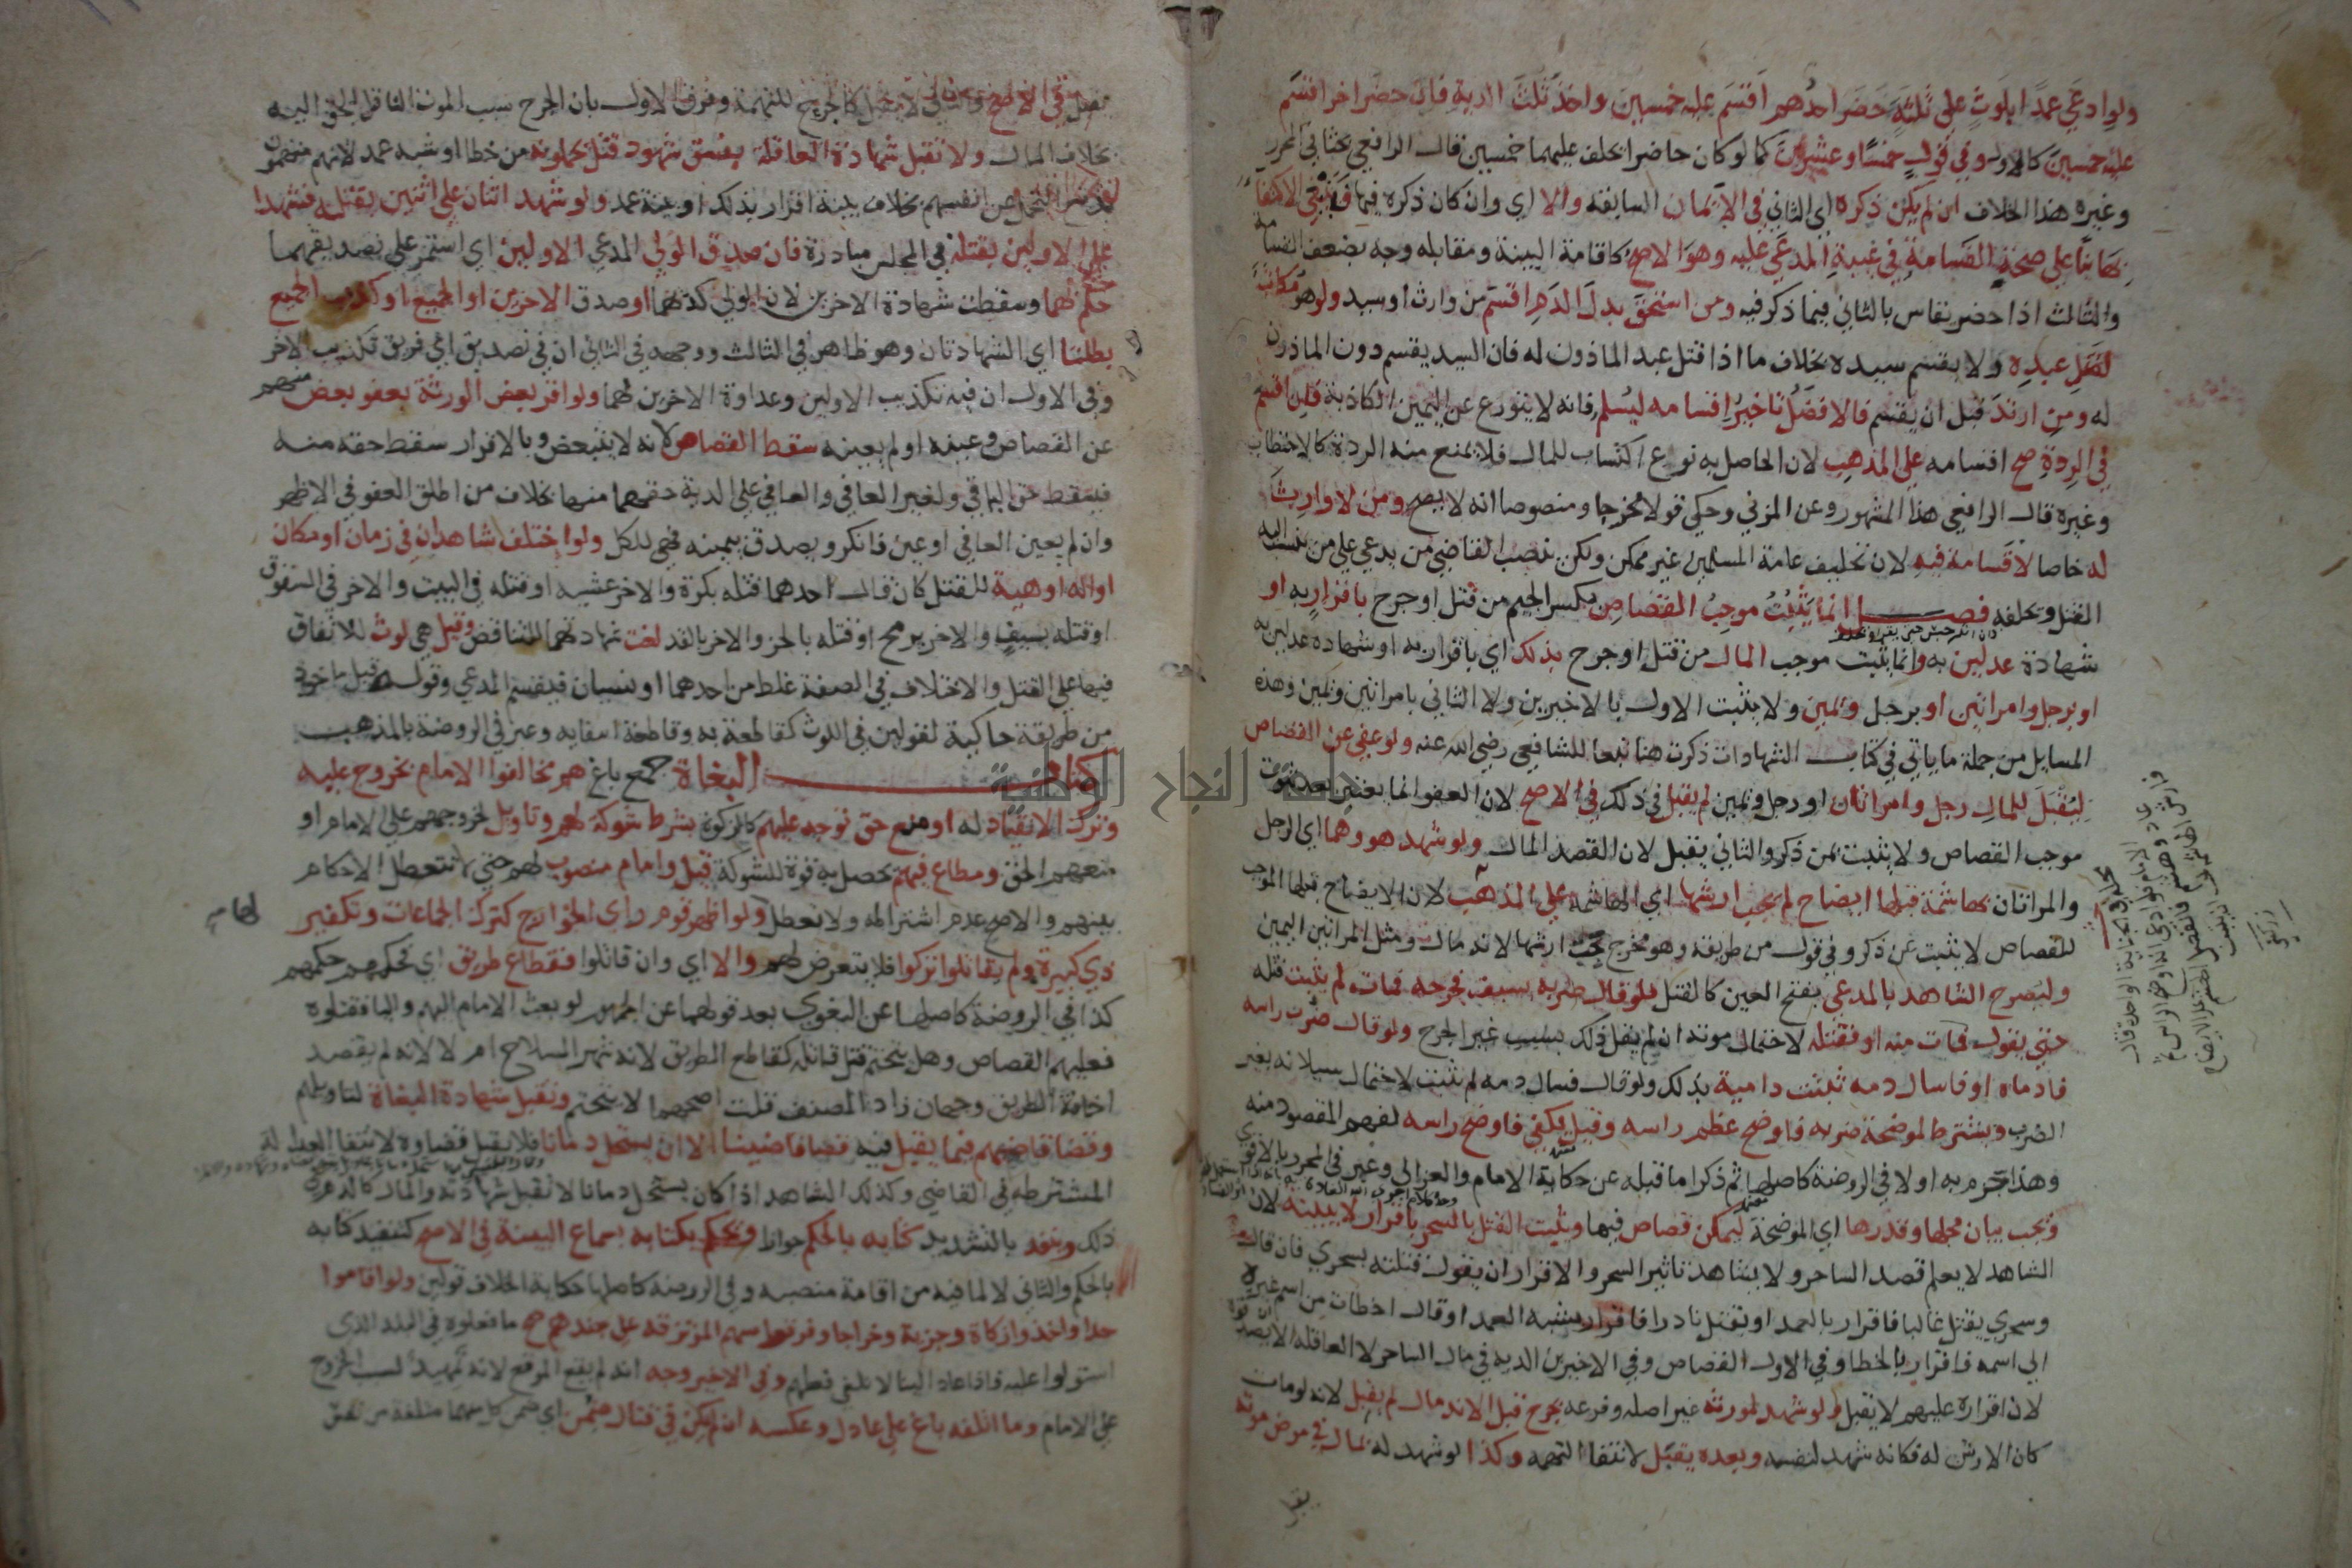 ولو ادعي عمدا بلوث علي ثلثة حضر احدهم اقسم عليه خمسين واخذ ثلث الدية فان حضر اخر اقسم
عليه خمسين كالاول وفي قول خمسا وعشرين كما لو كان حاضرا يحلف عليهما خمسين قال الرافعي بحثا في المحرر
وغيره هذا الخلاف ان لم يكن ذكره اي الثاني في الايمان السابقة والا اي وان كان ذكره فيها فينبغي الاكتفا
بها بنا علي صحة القسامة في غيبة المدعي عليه وهو الاصح كاقامة البينة ومقابله وجه بضعف القسامة
والثالث اذا حضر يقاس بالثاني فيما ذكر فيه ومن استحق بدل الدم اقسم من وارث او سيد ولو هو مكاتب
لقتل عبده ولا يقسم سيده بخلاف ما اذا قتل عبد الماذون له فان السيد يقسم دون الماذون
له ومن ارتد قبل ان يقسم فالافضل تاخير اقسامه ليسلم فانه لا يتورع عن اليمين الكاذبة فان اقسم
في الردة صح اقسامه علي المذهب لان الحاصل به نوع اكتساب للمال فلا يمنع منه الردة كالاحتطاب
وغيره قال الرافعي هذا المشهور وعن المزني وحكي قولا مخرجا ومنصوصا انه لا يصح ومن لا وارث
له خاصا لا قسامة فيه لان تحليف عامة المسلمين غير ممكن ولكن ينصب القاضي من يدعي علي من نسب اليه
القتل ويحلفه فصل انما يثبت موجب القصاص بكسر الجيم من قتل او جرح باقرار به او
شهادة عدلين به وانما يثبت موجب المال من قتل او جرح بذلك اي باقرار به او شهادة عدلين به
او برجل وامراتين او برجل ويمين ولا يثبت الاول بالاخيرين ولا الثاني بامراتين ويمين وهذه
المسايل من جملة ما ياتي في كتاب الشهادات ذكرت هنا تبعا للشافعي رضي الله عنه ولو عفي عن القصاص
ليقبل للمال رجل وامراتان او رجل ويمين لم يقبل في ذلك في الاصح لان العفو انما يعتبر بعد ثبوت
موجب القصاص ولا يثبت بمن ذكر والثاني يقبل لان القصد المال ولو شهد هو وهما اي الرجل
والمراتان بهاشمة قبلها ايضاح لم يجب ارشها اي الهاشمة علي المذهب لان الايضاح قبلها الموجب
للقصاص لا يثبت بمن ذكر وفي قول من طريقة وهو مخرج يجب ارشها لانه مال ومثل المراتين اليمين
وليصرح الشاهد بالمدعي بفتح العين كالقتل فلو قال ضربه بسيف فجرحه فمات لم يثبت قتله
حتي يقول فمات منه او فقتله لاحتمال موته ان لم يقل ذلك بسبب غير الجرح ولو قال ضرب راسه
فادماه او فاسال دمه ثبتت دامية بذلك ولو قال فسال دمه لم تثبت لاحتمال سيلانه بغير
الضرب ويشترط لموضحة ضربه فاوضح عظم راسه وقيل يكفي فاوضح راسه لفهم المقصود منه
وهذا جزم به اولا في الروضة كاصلها ثم ذكرا ما قبله عن حكاية الامام والغزالي وعبر في المحرر بالاقوي
ويجب بيان محلها وقدرها اي الموضحة ليمكن قصاص فيها ويثبت القتل بالسحر باقرار لا ببينة لان
الشاهد لا يعلم قصد الساحر ولا يشاهد تاثير السحر والاقرار ان يقول قتلته بسحري فان قال
وسحري يقتل غالبا فاقرار بالعمد او يقتل نادرا فاقرار بشبه العمد او قال اخطات من اسم غيره
الي اسمه فاقرار بالخطا وفي الاول القصاص وفي الاخيرين الدية في مال الساحر لا العاقلة الا ان تصدقه
لان اقراره عليهم لا يقبل ولو شهد لمورثه غير اصله وفرعه بجرح قبل الاندمال لم يقبل لانه لو مات
كان الارش له فكانه شهد لنفسه وبعده يقبل لانتفا التهمة وكذا لو شهد له بمال في مرض موته
يقبل في الاصح والثاني لا يقبل كالجرح للتهمة وفرق الاول بان الجرح سبب الموت الناقل للحق اليه
بخلاف المال ولا تقبل شهادة العاقلة بفسق شهود قتل يحملونه من خطا او شبه عمد لانهم متهمون
بدفع التحمل عن انفسهم بخلاف بينة اقرار بذلك او بينة عمد ولو شهد اثنان علي اثنين بقتله فشهدا
علي الاولين بقتله في المجلس مبادرة فان صدق الولي المدعي الاولين اي استمر علي تصديقهما
حكم لهما وسقطت شهادة الاخرين لان الولي كذبهما او صدق الاخرين او الجميع او كذب الجميع
بطلتا اي الشهادتان وهو ظاهر في الثالث ووجهه في الثاني ان في تصديق اي فريق تكذيب الاخر
وفي الاول ان فيه تكذيب الاولين وعداوة الاخرين لهما ولو اقر بعض الورثة بعفو بعض منهم
عن القصاص وعينه او لم يعينه سقط القصاص لانه لا يتبعض وبالاقرار سقط حقه منه
فيسقط حق الباقي ولغير العافي والعافي علي الدية حقهما منها بخلاف من اطلق العفو في الاظهر
وان لم يعين العافي او عين فانكر ويصدق بيمينه فهي للكل ولو اختلف شاهدان في زمان او مكان
او الة او هيئة للقتل كان قال احدهما قتله بكرة والاخر عشية او قتله في البيت والاخر في السوق
او قتله بسيف والاخر برمح او قتله بالحز والاخر بالقد لغت شهادتهما للتناقض وقيل هي لوث للاتفاق
فيها علي القتل والاختلاف في الصفة غلط من احدهما او نسيان فيقسم المدعي وقوله قيل ماخوذ
من طريقة حاكية لقولين في اللوث كقاطعة به وقاطعة انتفايه وعبر في الروضة بالمذهب
كتاب البغاة جمع باغ هم مخالفوا الامام بخروج عليه
وترك الانقياد له او منع حق توجه عليهم كالزكوة بشرط شوكة لهم وتاويل لخروجهم علي الامام او
منعهم الحق ومطاع فيهم يحصل به قوة للشوكة قيل وامام منصوب لهم حتي لا تتعطل الاحكام
بينهم والاصح عدم اشتراطه ولا تعطل ولو اظهر قوم راي الخوارج كترك الجماعات وتكفير
ذي كبيرة ولم يقاتلوا تركوا فلا يتعرض لهم والا اي وان قاتلوا فقطاع طريق اي حكمهم حكمهم
كذا في الروضة كاصلها عن البغوي بعد قولهما عن الجمهور لو بعث الامام اليهم واليا فقتلوه
فعليهم القصاص وهل يتحتم قتل قاتله كقاطع الطريق لانه شهر السلاح ام لا لانه لم يقصد
اخافة الطريق وجهان زاد المصنف قلت اصحهما لا يتحتم وتقبل شهادة البغاة لتاويلهم
وقضا قاضيهم فيما يقبل فيه قضا قاضينا الا ان يستحل دمانا فلا يقبل قضاوه لانتفا العدالة
المشترطة في القاضي وكذلك الشاهد اذا كان يستحل دمانا لا تقبل شهادته والمال كالدم في
ذلك وينفذ بالتشديد كتابه بالحكم جوازا ويحكم بكتابه بسماع البينة في الاصح كتنفيذ كتابه
بالحكم والثاني لا لما فيه من اقامة منصبه وفي الروضة كاصلها حكاية الخلاف قولين ولو اقاموا
حدا واخذوا زكاة وجزية وخراجا وفرقوا سهم المرتزقة علي جندهم صح ما فعلوه في البلد الذي
استولوا عليه فاذا عاد الينا لا نلغي فعلهم وفي الاخير وجه انه لم يقع الموقع لانه تمهيد لسبب الخروج
علي الامام وما اتلفه باغ علي عادل وعكسه ان لم يكن في قتال ضمن اي ضمن كل منهما متلفه من نفس
جامعة النجاح الوطنية